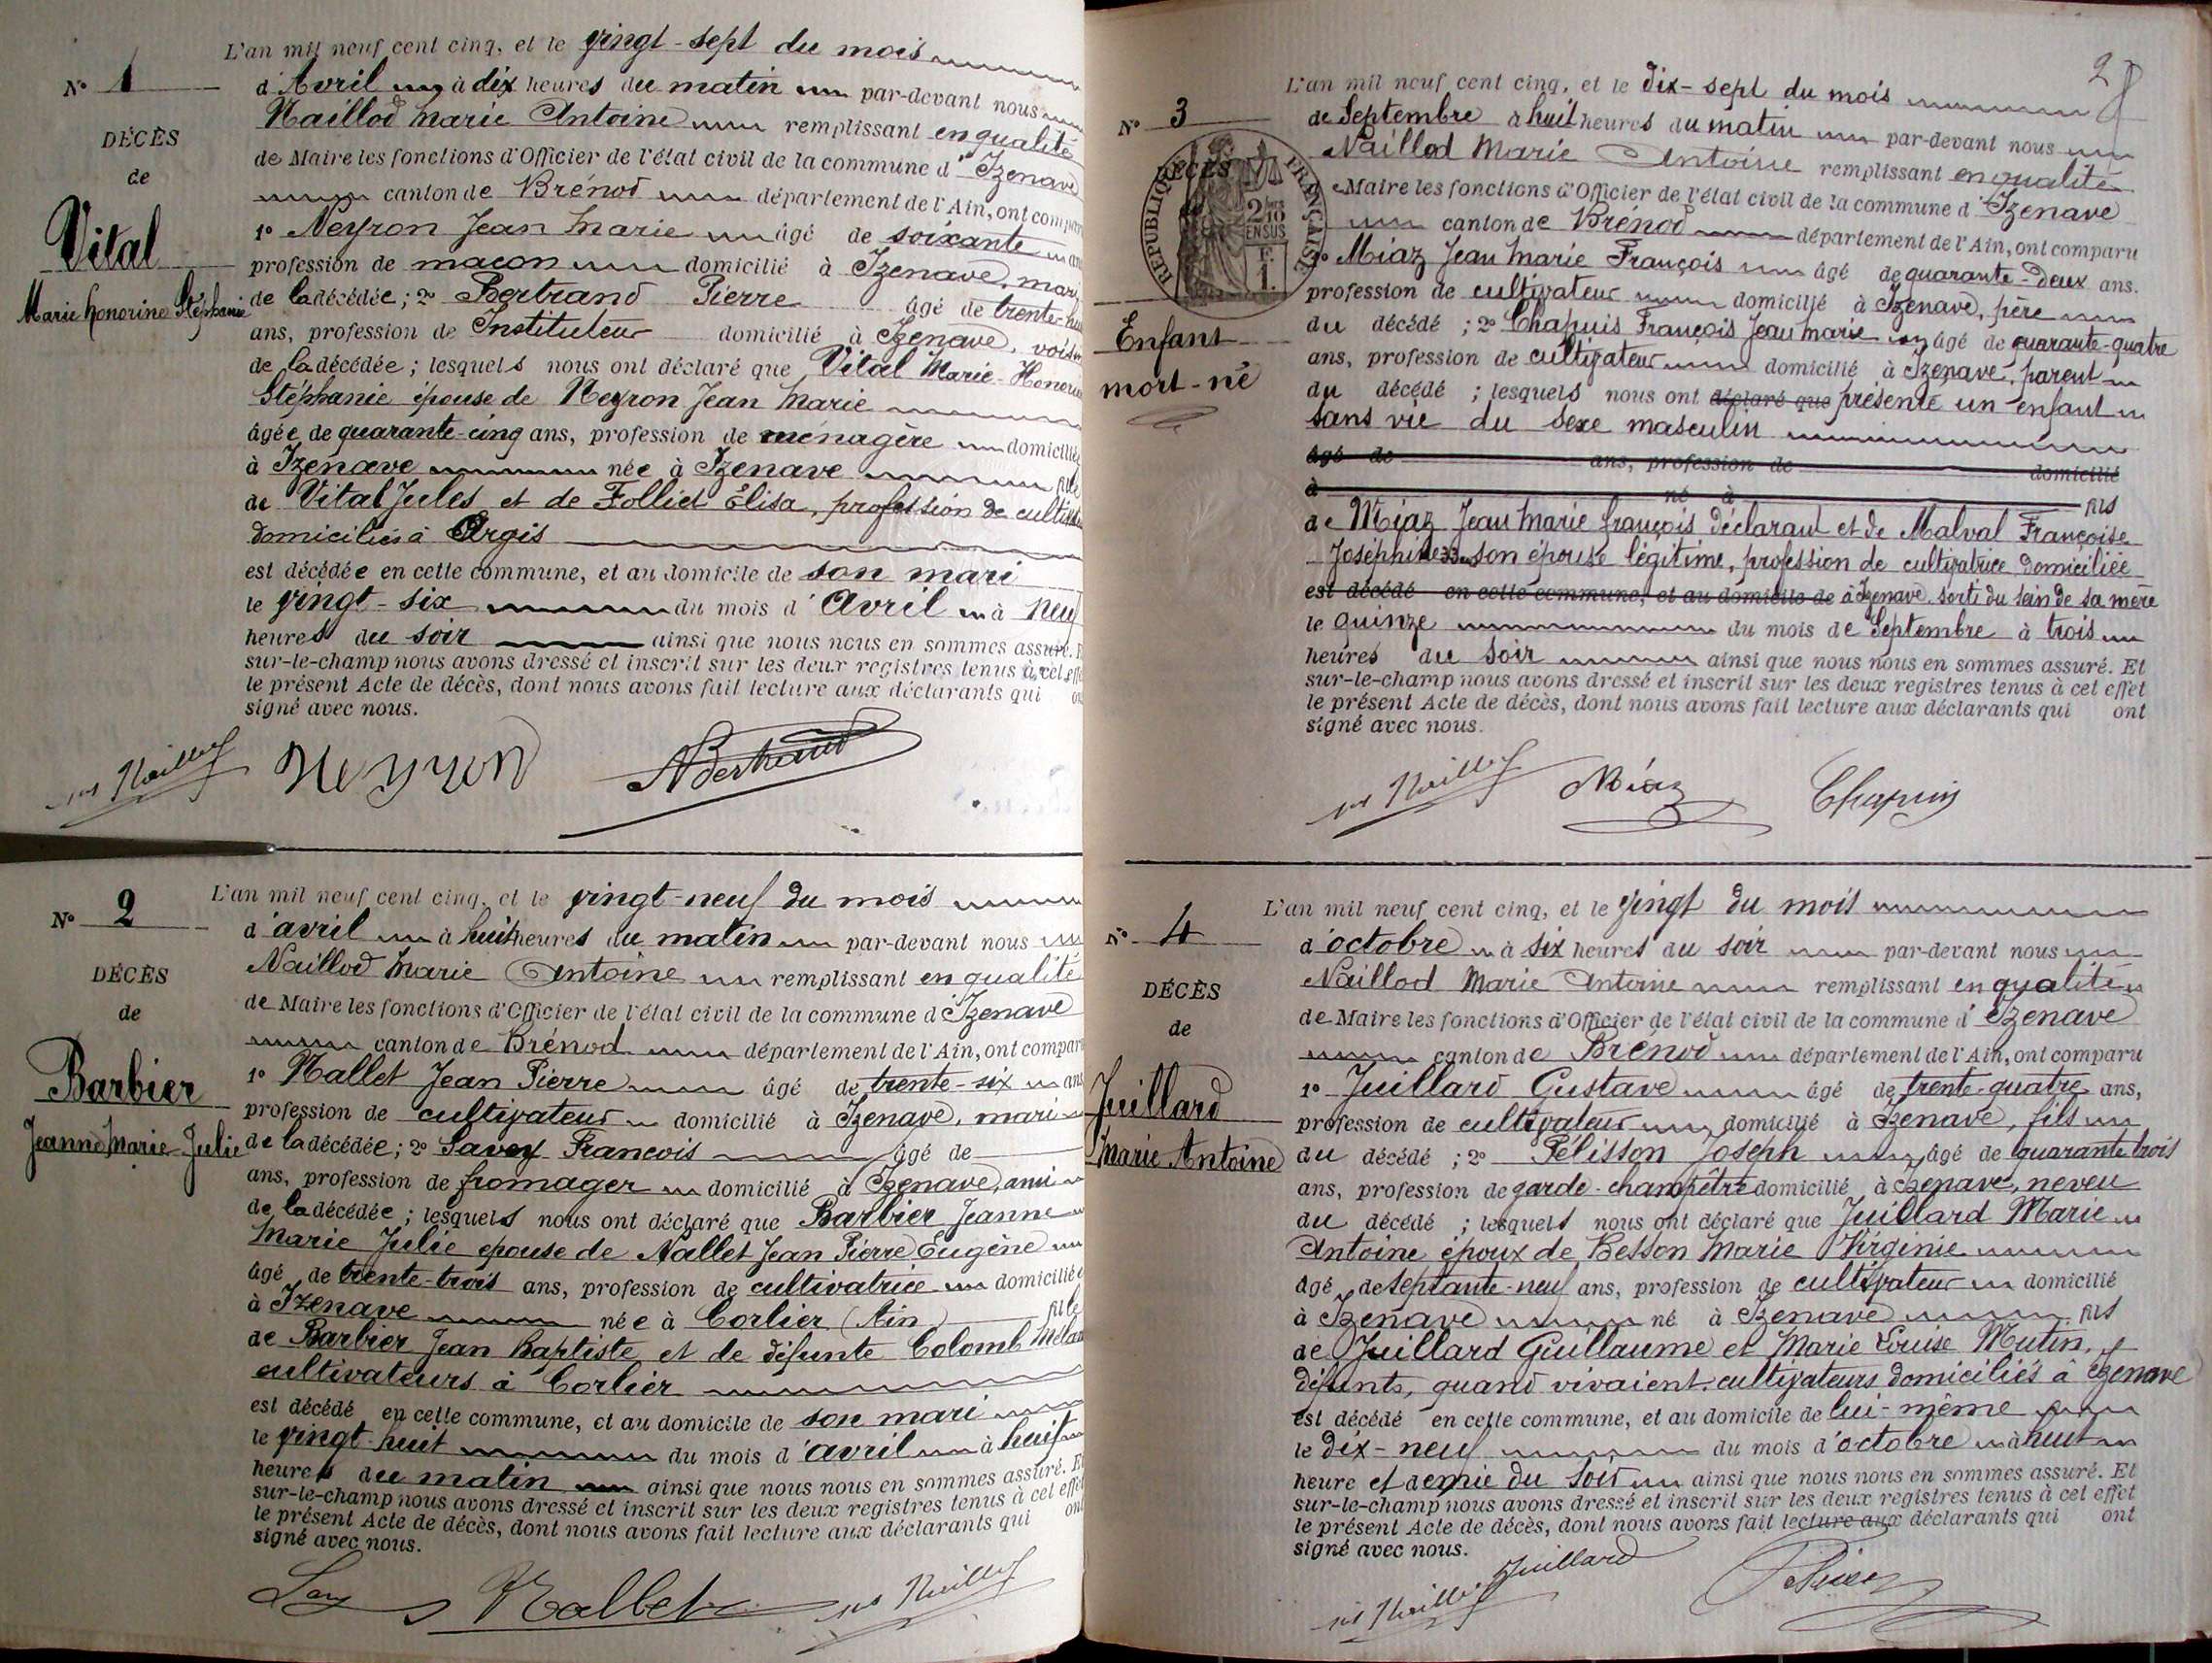 N° 1
DÉCÈS
de
Vital
Marie Honorine Stéphanie
L'an mil neuf cent cinq, et le vingt-sept du mois
d'Avril à dix heures du matin par-devant nous
Naillod Marie Antoine remplissant en qualité
de Maire les fonctions d'Officier de l'état civil de la commune d'Izenave
canton de Brénod département de l'Ain, ont compar
1° Neyron Jean Marie âgé de soixante an
profession de maçon domicilié à Izenave, mari
de la décédée; 2° Bertrand Pierre âgé de trente-hu
ans, profession de Instituteur domicilié à Izenave, voisin
de la décédée; lesquels nous ont déclaré que Vital Marie-Honorin
Stéphanie épouse de Neyron Jean Marie
âgée de quarante-cinq ans, profession de ménagère domiciliée
à Izenave née à Izenave fille
de Vital Jules et de Folliet Élisa, profession de cultiv
domiciliés à Argis
est décédée en cette commune, et au domicile de son mari
le vingt-six du mois d'Avril à neuf
heures du soir ainsi que nous nous en sommes assuré. E
sur-le-champ nous avons dressé et inscrit sur les deux registres tenus à cet effe
le présent Acte de décès, dont nous avons fait lecture aux déclarants qui on
signé avec nous.
Naillod Neyron Bertrand
N° 2
DÉCÈS
de
Barbier
Jeanne Marie-Julie
L'an mil neuf cent cinq, et le vingt-neuf du mois
d'avril à huit heures du matin par-devant nous
Naillod Marie Antoine remplissant en qualité
de Maire les fonctions d'Officier de l'état civil de la commune d'Izenave
canton de Brénod département de l'Ain, ont compar
1° Nallet Jean Pierre âgé de trente-six ans
profession de cultivateur domicilié à Izenave, mari
de la décédée; 2° Savey François âgé de
ans, profession de fromager domicilié à Izenave, ami
de la décédée; lesquels nous ont déclaré que Barbier Jeanne
Marie Julie epouse de Nallet Jean Pierre Eugène
âgé de trente-trois ans, profession de cultivatrice domiciliée
à Izenave née à Corlier (Ain) fille
de Barbier Jean Baptiste et de défunte Colomb Mélan
cultivateurs à Corlier
est décédé en cette commune, et au domicile de son mari
le vingt-huit du mois d'avril à huit
heures du matin ainsi que nous nous en sommes assuré. Et
sur-le-champ nous avons dressé et inscrit sur les deux registres tenus à cet effet
le présent Acte de décès, dont nous avons fait lecture aux déclarants qui ont
signé avec nous.
Nallet Naillod
2
N° 3
DÉCÈS
RÉPUBLIQUE FRANÇAISE
2/10 EN SUS
Enfant
mort-né
L'an mil neuf cent cinq, et le dix-sept du mois
de Septembre à huit heures du matin par-devant nous
Naillod Marie Antoine remplissant en qualité
Maire les fonctions d'Officier de l'état civil de la commune d'Izenave
canton de Brénod département de l'Ain, ont comparu
1° Miaz Jean Marie François âgé de quarante-deux ans.
profession de cultivateur domicilié à Izenave, père
du décédé; 2° Chapuis François Jean Marie âgé de quarante-quatre
ans, profession de cultivateur domicilié à Izenave, parent
du décédé; lesquels nous ont déclaré que présenté un enfant
sans vie du sexe masculin
âgé de ans, profession de domicilié
à né à fils
de Miaz Jean Marie françois déclarant et de Malval Françoise
Joséphine 33 ans son épouse légitime, profession de cultivatrice domiciliée
est décédé en cette commune, et au domicile de à Izenave. sorti du sein de sa mère
le quinze du mois de Septembre à trois
heures du soir ainsi que nous nous en sommes assuré. Et
sur-le-champ nous avons dressé et inscrit sur les deux registres tenus à cet effet
le présent Acte de décès, dont nous avons fait lecture aux déclarants qui ont
signé avec nous.
Naillod Miaz Chapuis
N° 4
DÉCÈS
de
Juillard
Marie Antoine
L'an mil neuf cent cinq, et le vingt du mois
d'octobre à six heures du soir par-devant nous
Naillod Marie Antoine remplissant en qualité
de Maire les fonctions d'Officier de l'état civil de la commune d'Izenave
canton de Brénod département de l'Ain, ont comparu
1° Juillard Gustave âgé de trente-quatre ans,
profession de cultivateur domicilié à Izenave, fils
du décédé; 2° Pélisson Joseph âgé de quarante trois
ans, profession de garde-champêtre domicilié à Izenave, neveu
du décédé; lesquels nous ont déclaré que Juillard Marie
Antoine époux de Besson Marie Virginie
âgé de septante-neuf ans, profession de cultivateur domicilié
à Izenave né à Izenave fils
de Juillard Guillaume et Marie Louise Mutin,
défunts, quand vivaient cultivateurs domiciliés à Izenave
est décédé en cette commune, et au domicile de lui-même
le dix-neuf du mois d'octobre à
heure et demie du soir ainsi que nous nous en sommes assuré. Et
sur-le-champ nous avons dressé et inscrit sur les deux registres tenus à cet effet
le présent Acte de décès, dont nous avons fait lecture aux déclarants qui ont
signé avec nous.
Naillod Juillard